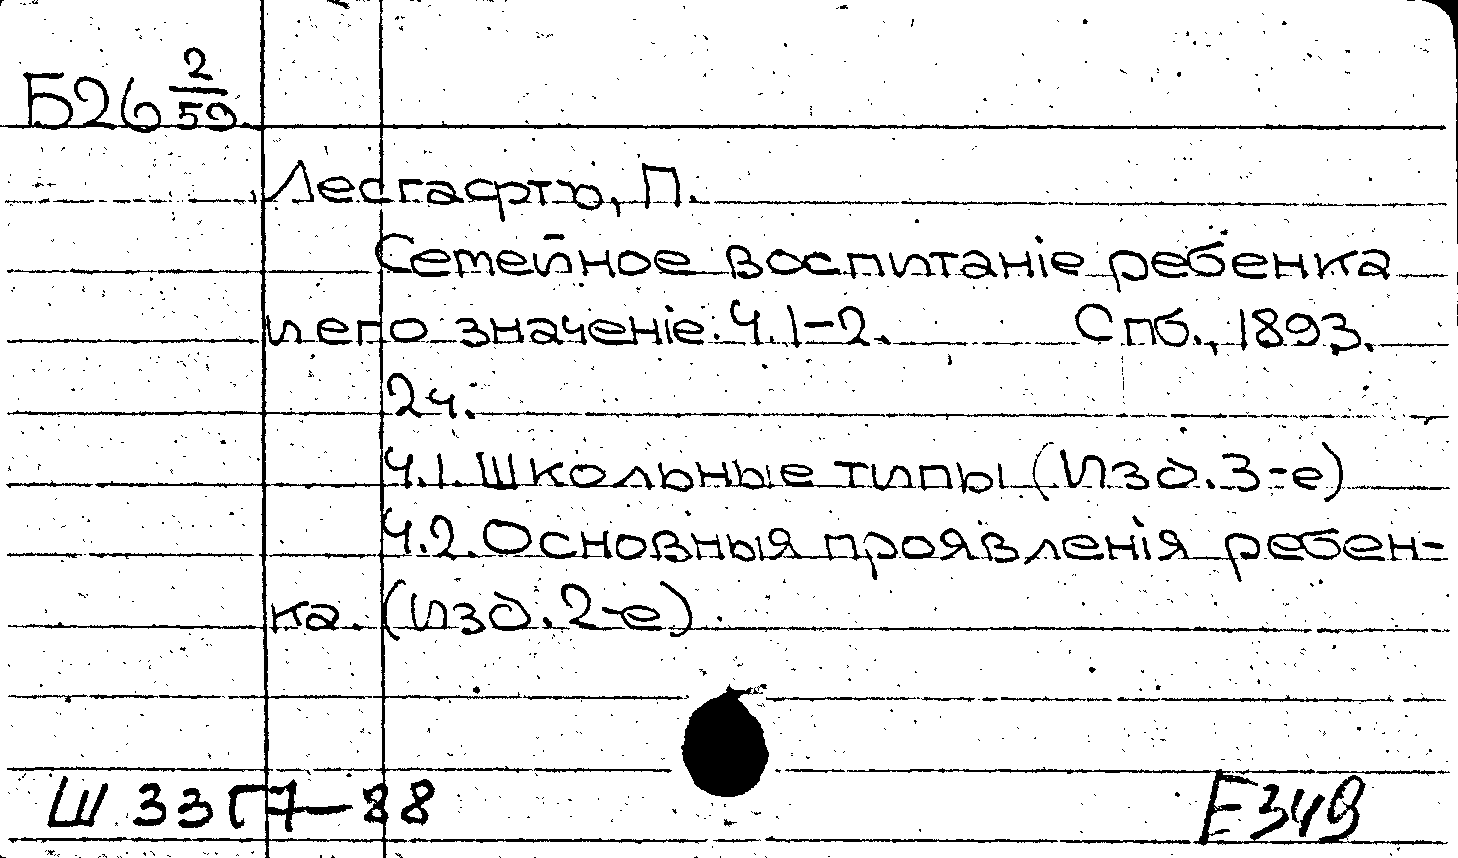 Б26 2/50.
Лесгафтъ, П.
Семейное воспитаніе ребенка
и его значеніе. Ч. 1-2. Спб., 1893.
2ч.
Ч.1. Школьные типы (Изд. 3-е)
Ч.2. Основныя проявленія ребен-
ка. (Изд. 2-е)
Ш 33Г7-88 Е349